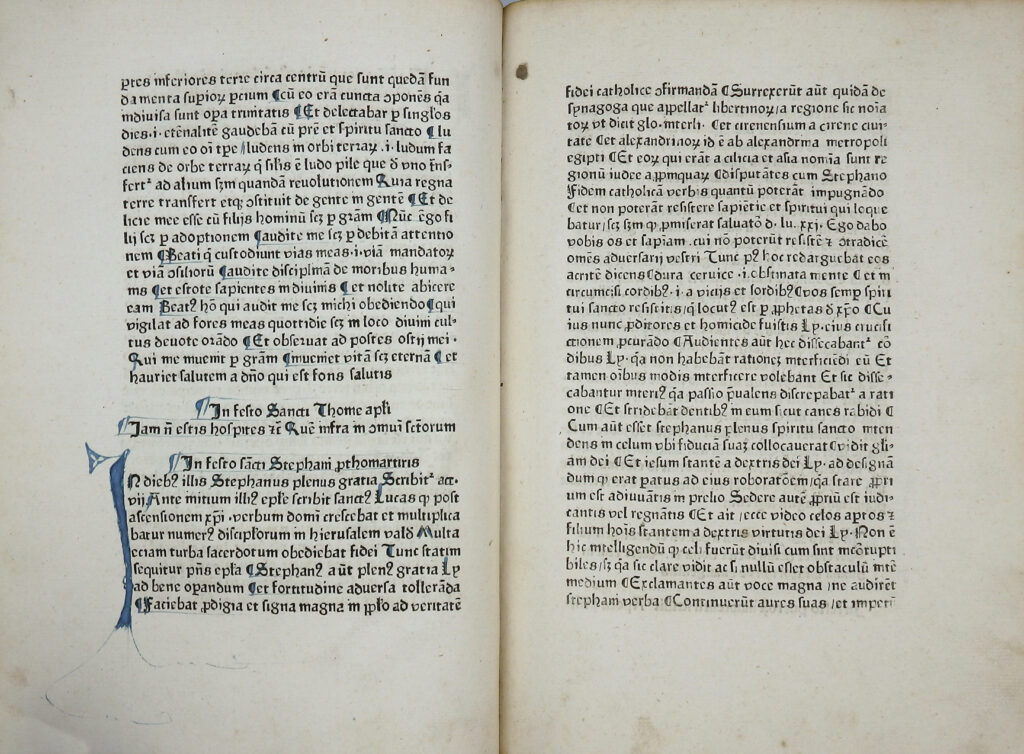 ptes inferiores terre circa centrū que sunt quedā fun
damenta supioꝝ pcium ¶cū eo erā cuncta ↄponēs q̄a
indiuisa sunt oꝑa trinitatis ¶Et delectabar ꝑ singlos
dies.i.etēnalitē gaudebā cū prē et spiritu sancto ¶lu
dens cum eo oī tꝑe /ludens in orbi terraꝝ.i.ludum fa
ciens de orbe terraꝝ q̄ silis ē ludo pile que d̄ vno
fertᵗ ad alium sꝫm quandā reuolutionem Quia regna
terre transfert etqꝫ ↄstituit de gente in gentē ¶Et de
licie mee esse cū filijs hominū scꝫ ꝑ grām ¶Nūc ēgo fi
lij scꝫ ꝑ adoptionem ¶audite me scꝫ ꝑ debitā attentio
nem ¶Beati q̄ custodiunt vias meas.i.viā mandatoꝝ
et viā ↄsilioꝝ ¶audite disciplinā de moribus huma⸗
nis ¶et estote sapientes in diuinis ¶et nolite abicere
eam Beatꝰ hō qui audit me scꝫ michi obediendo ¶qui
vigilat ad fores meas quottidie scꝫ in loco diuini cul⸗
tus deuote orādo ¶Et obseruat ad postes ostij mei.
Qui me inuenit ꝑ grām ¶inueniet vitā scꝫ eternā ¶et
hauriet salutem a dn̄o qui est fons salutis
¶In festo Sancti Thome apli
¶Iam n̄ estis hospites ⁊c̄ Quē infra in omniū sctōrum
¶In festo sācti Stephani ꝓthomartiris
In diebꝰ illis Stephanus plenus gratia Scribitᵗ act.
vij. Ante initium illiꝰ eple scribit sanctꝰ Lucas ꝙ post
ascensionem xpi.verbum domī crescebat et multiplica
batur numerꝰ disciplorum in hierusalem valde Multa
eciam turba sacerdotum obediebat fidei Tunc statim
sequitur pn̄s epla ¶Stephanꝰ aūt plenꝰ gratia Ly
ad bene oꝑandum ¶et fortitudine aduersa tollerāda
¶Faciebat ꝓdigia et signa magna in pplo ad veritatē
fidei catholice ↄfirmandā ¶Surrexerūt aūt quidā de
synagoga que appellatᵗ libertinoꝝ/a regione sic noīa
toꝝ vt dicit glo.interli. ¶et cirenensium a cirene ciui⸗
tate ¶et alexandrinoꝝ id ē ab alexandrina metropoli
egipti ¶Et eoꝝ qui erāt a cilicia et asia nomīa sunt re
gionū iudee a ꝓpinquaꝝ ¶disputātes cum Stephano
Fidem catholicā verbis quantū poterāt impugnādo
¶et non poterāt resistere sapiētie et spiritui qui loque
batur/scꝫ sꝫm ꝙ ꝓmiserat saluatō d. lu.xxj. Ego dabo
vobis os et sapīam.cui nō poterūt resistē ⁊ ↄtradicē
omēs aduersarij vestri Tunc pꝰ hoc redarguebat eos
acritē dicens ¶dura ceruice .i.obstinata mente ¶et in
circumcisi cordibꝰ.i.a vicijs et sordibꝰ ¶vos semp spiri
tui sancto resistitis/q̄ locutꝰ est ꝑ ꝓphetas d̄ xp̄o ¶Cu
ius nunc ꝓditores et homicide fuistis Ly.eius crucifi
ctionem ꝓcurādo ¶Audientes aūt hec dissecabantᵗ cō
dibus Ly.q̄a non habebāt rationeꝫ interficiēdi eū Et
tamen oībus modis interficere volebant Et sic disse⸗
cabantur interiꝰ q̄a passio p̄ualens discrepabatᵗ a rati
one ¶Et stridebāt dentibꝰ in eum sicut canes rabidi ¶
Cum aūt esset stephanus plenus spiritu sancto inten
dens in celum vbi fiduciā suaꝫ collocauerat ¶vidit gli⸗
am dei ¶Et iesum stantē a dextris dei Ly.ad designā
dum ꝙ erat patus ad eius roboratōem/q̄a stare ꝓpri
um est adiuuātis in prelio Sedere autē ꝓpriū est iudi⸗
cantis vel regnātis ¶Et ait /ecce video celos aptos ⁊
filium hoīs stantem a dextris virtutis dei Ly.Non ē
hic intelligendū ꝙ celi fuerūt diuisi cum sint incōrupti
biles/sꝫ q̄a sic clare vidit ac si nullū esset obstaculū inte
medium ¶Exclamantes aūt voce magna /ne audirēt
stephani verba ¶Continuerūt aures suas /et impetū